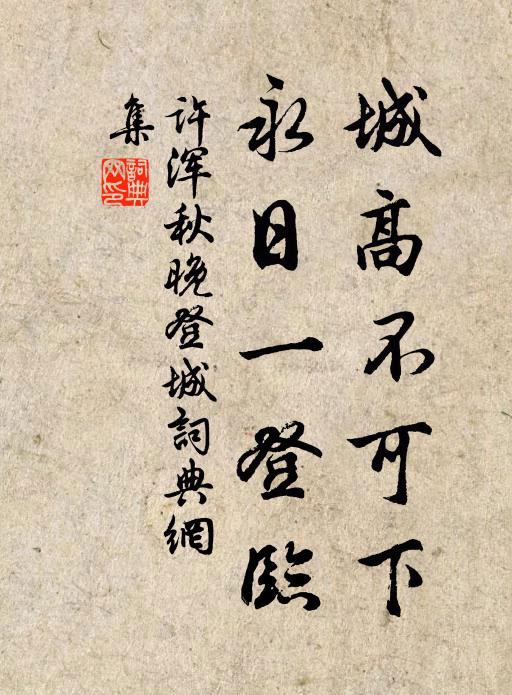 城高不可下
永日一登臨
许浑秋晚登城詞典網
集
詞典
网印